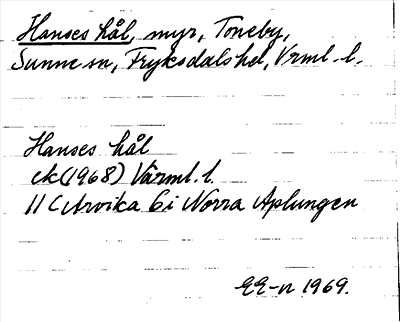 Hanses hål, myr, Toneby,
Sunne sn, Fryksdals hd, Vrml. l.
Hanses hål
ek (1968) Värml. l.
11 C Arvika 6 i Norra Aplungen
EE-n 1969.